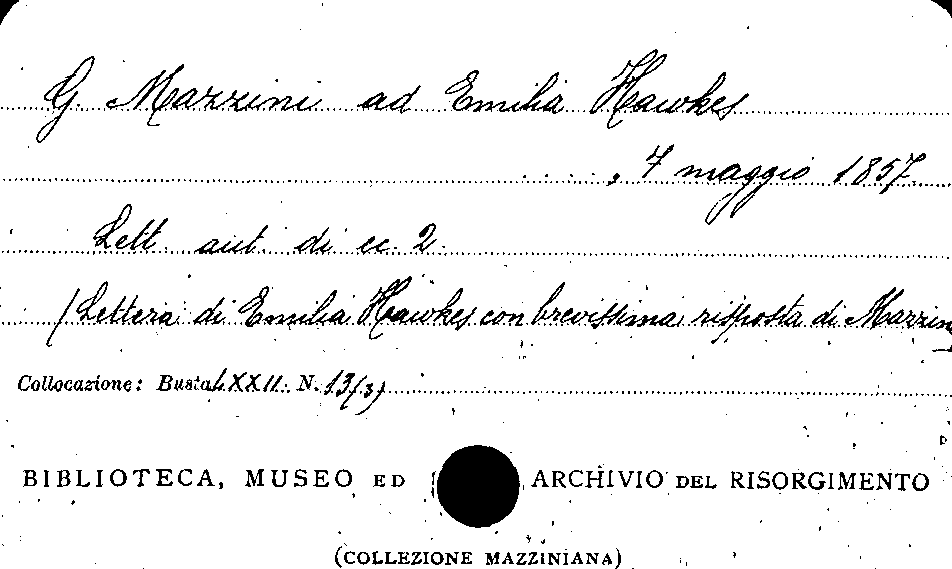 G. Mazzini ad Emilia Hawkes
....., 7 maggio 1857
Lett. aut. di cc. 2.
(Lettera di Emilia Hawkes con brevissima risposta di Mazzini
Collocazione: Busta LXXII. N. 13(3)
BIBLIOTECA, MUSEO ED ARCHIVIO DEL RISORGIMENTO
(COLLEZIONE MAZZINIANA)